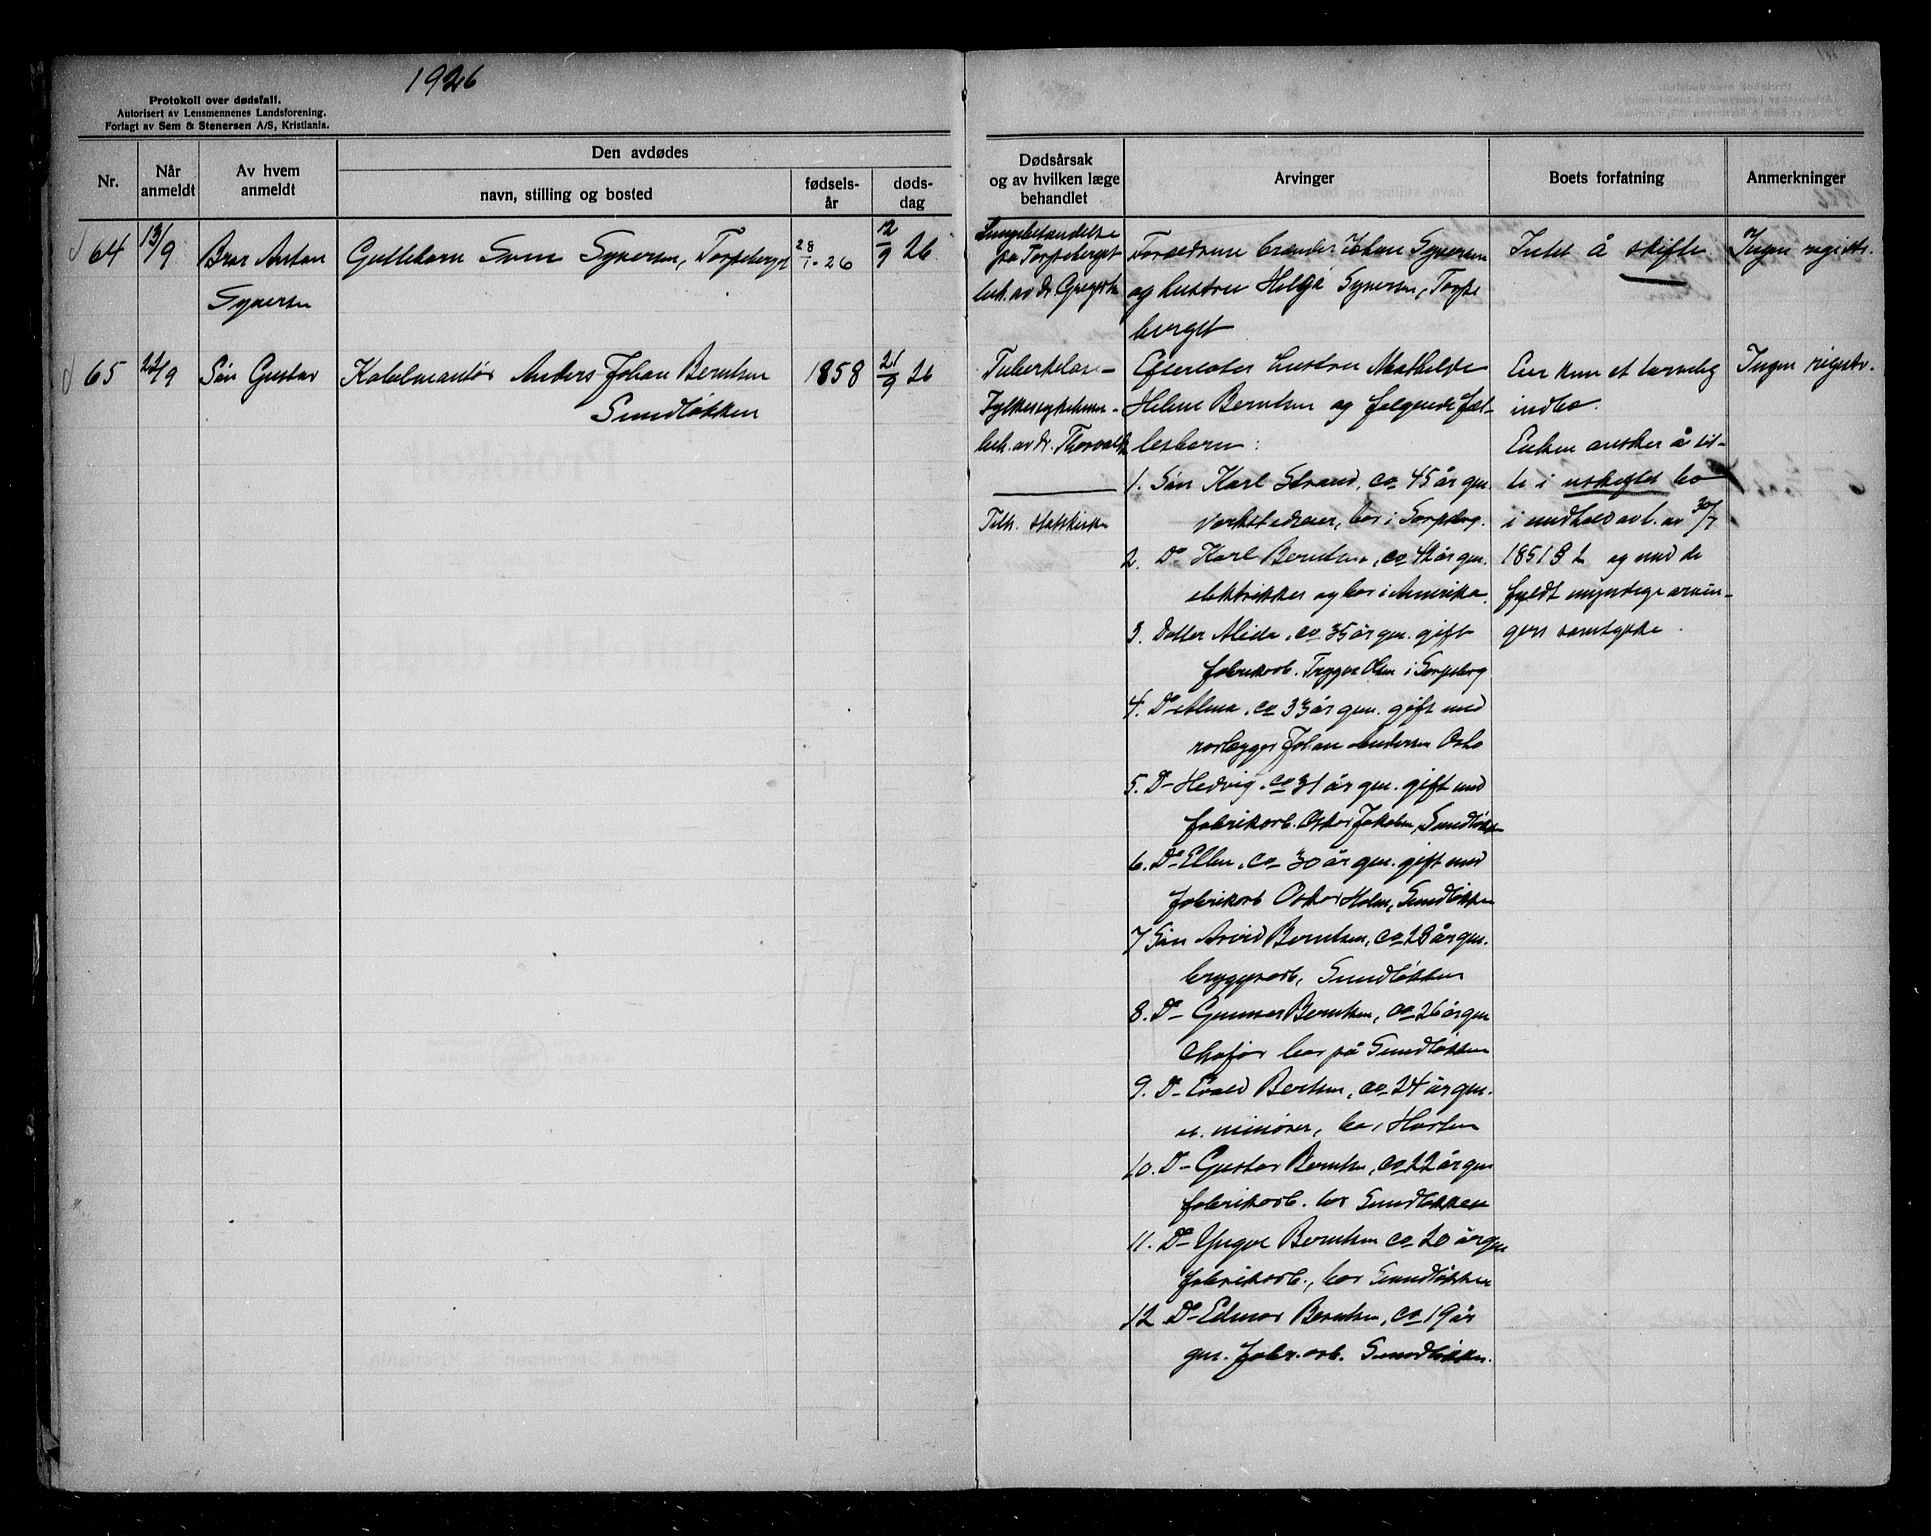 1926
Protokoll over dødsfall.
Autorisert av Lensmennenes Landsforening.
Forlagt av Sem & Stenersen A/S, Kristiania.
Nr.
Når anmeldt
Av hvem anmeldt
Den avdødes
navn, stilling og bosted
fødsels-år
døds-dag
Dødsårsak og av hvilken læge behandlet
Arvinger
Boets forfatning
Anmerkninger
64
13/9
Bror Anton
Syversen
Guttebarn Svein Syversen, Torpeberget
28/1-26
12/9 26
Lungebetændelse
på Torpeberget
beh. av dr.
Forældrene brænder Johan Syversen
og hustru Helga Syversen, Torpe
berget
Intet å skifte
Ingen registr.
65
22/9
Søn Gustav
Kabelmontør Anders Johan Berntsen
Sundløkken
1858
21/9 26
Tuberkulose -
Fylkessykehuset -
beh. av dr. Thorvald
Tilh. statskirken
Efterlater hustru Mathilde
Helene Berntsen og følgende fæl-
lesbarn:
1. Søn Karl Strand, co 45 år gm.
bor i Sarpsborg.
2. Do Karl Berntsen, co 42 år gm.
elektriker og bor i Amerika.
3. Datter Alida, co 35 år gm. gift
fabrikarb. Trygve Olsen i Sarpsborg
4. Do Alma, co 33 år gm. gift med
rørlægger Johan Andersen Oslo
5. Do Hedvig, co 31 år gm. gift med
fabrikarb. Oskar Jakobsen, Sundløkken
6. Do Ellen, co 30 år gm. gift med
fabrikarb Oskar Holm, Sundløkken
7 Søn Arvid Berntsen, co 28 år gm.
bryggearb, Sundløkken
8. Do Gunnar Berntsen, co 26 år gm
chafør bor på Sundløkken
9. Do Evald Berntsen, co 24 år gm.
u. minører, bor i Horten
10. Do Gustav Berntsen, co 22 år gm
fabrikarb. bor Sundløkken
11. Do Yngve Berntsen co 20 år gm
fabrikarb., bor Sundløkken
12. Do Edmar Berntsen, co 19 år
gm. fabr.arb. Sundløkken.
Eier kun et tarvelig
indbo.
Enken ønsker å sit-
te i uskiftet bo
i medhold av l. av 30/7
1851 § 2 og med de
fyldt myndige arvin-
gers samtykke.
Ingen registr.